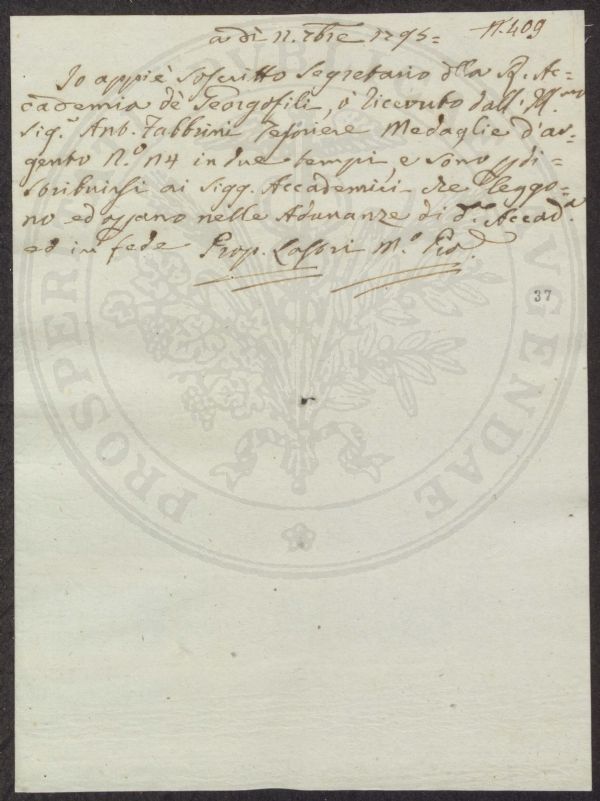 a dì 11. 7bre 1795= N. 409
Io appiè soscritto Segretario d͠lla R. Ac=
cademia de' Georgofili, ò ricevuto dall' Ill.mo
Sig.r Ant. Fabbrini Tesoriere Medaglie d'ar=
gento N.o 114 in due tempi e sono p di=
stribuirsi ai Sigg. Accademici che leggo=
no ed ànno nelle Adunanze di d.a Accad.a
ed in fede
37
PROSPERITATI PUBLICAE AUGENDAE